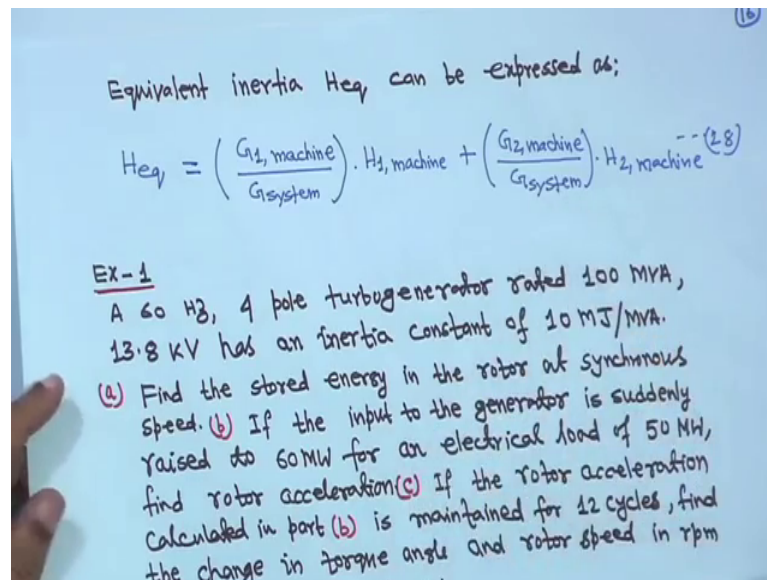 (16)
Equivalent inertia Heq can be expressed as:
Heq = (G1, machine / Gsystem) . H1, machine + (G2, machine / Gsystem) . H2, machine --(28)
Ex-1
A 60 Hz, 4 pole turbogenerator rated 100 MVA,
13.8 KV has an inertia constant of 10 MJ/MVA.
(a) Find the stored energy in the rotor at synchronous
speed. (b) If the input to the generator is suddenly
raised to 60 MW for an electrical load of 50 MW,
find rotor acceleration (c) If the rotor acceleration
calculated in part (b) is maintained for 12 cycles, find
the change in torque angle and rotor speed in rpm